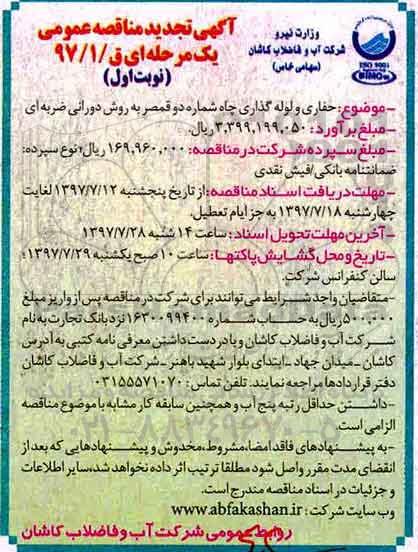 وزارت نیرو
شرکت آب و فاضلاب کاشان
(سهامی خاص)
ISO 9001
آگهی تجدید مناقصه عمومی
یک مرحله ای ق/۹۷/۱
(نوبت اول)
-موضوع: حفاری و لوله گذاری چاه شماره دو قمصر به روش دورانی ضربه ای
-مبلغ برآورد: ۳,۳۹۹,۱۹۹,۰۵۰ ریال.
-مبلغ سپرده شرکت در مناقصه: ۱۶۹,۹۶۰,۰۰۰ ریال؛ نوع سپرده:
ضمانتنامه بانکی/فیش نقدی
-مهلت دریافت اسناد مناقصه: از تاریخ پنجشنبه ۱۳۹۷/۷/۱۲ لغایت
چهارشنبه ۱۳۹۷/۷/۱۸ به جز ایام تعطیل.
-آخرین مهلت تحویل اسناد: ساعت ۱۴ شنبه ۱۳۹۷/۷/۲۸
-تاریخ و محل گشایش پاکتها: ساعت ۱۰ صبح یکشنبه ۱۳۹۷/۷/۲۹؛
سالن کنفرانس شرکت.
-متقاضیان واجد شرایط می توانند برای شرکت در مناقصه پس از واریز مبلغ
۵۰۰,۰۰۰ ریال به حساب شماره ۱۶۳۰۰۹۹۴۰۰ نزد بانک تجارت به نام
شرکت آب و فاضلاب کاشان و با در دست داشتن معرفی نامه کتبی به آدرس
کاشان - میدان جهاد - ابتدای بلوار شهید باهنر - شرکت آب و فاضلاب کاشان
دفتر قراردادها مراجعه نمایند. تلفن تماس: ۰۳۱۵۵۵۷۱۰۷۰
-داشتن حداقل رتبه پنج آب و همچنین سابقه کار مشابه با موضوع مناقصه
الزامی است.
-به پیشنهادهای فاقد امضا، مشروط، مخدوش و پیشنهادهایی که بعد از
انقضای مدت مقرر واصل شود مطلقا ترتیب اثر داده نخواهد شد، سایر اطلاعات
و جزئیات در اسناد مناقصه مندرج است.
وب سایت شرکت: www.abfakashan.ir
روابط عمومی شرکت آب و فاضلاب کاشان